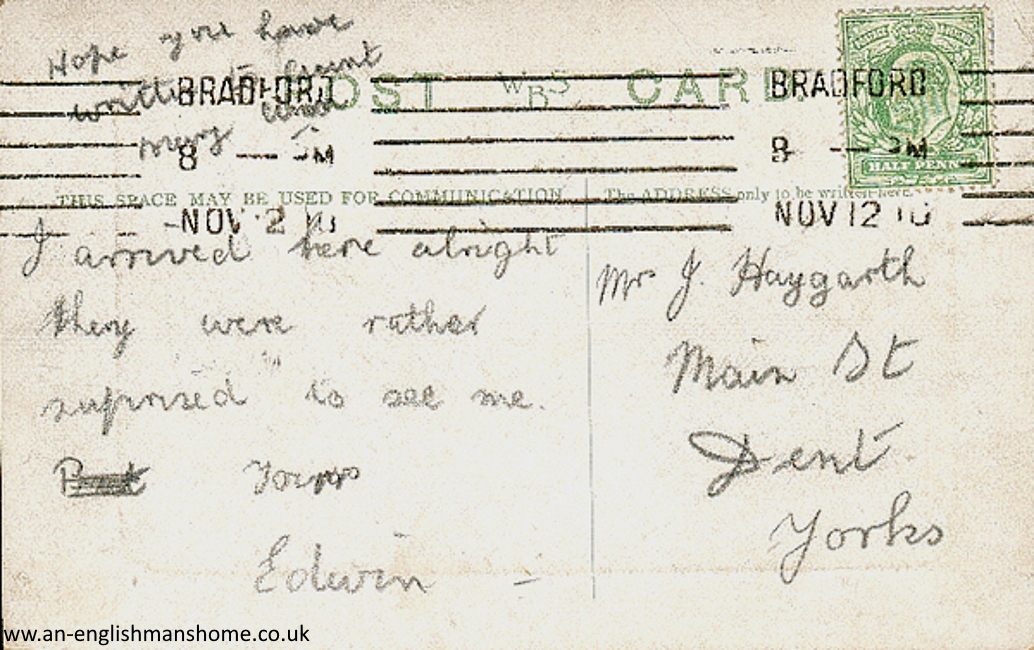 Hope you have
written to
POST CARD.
WBS
BRADFORD
8 - M
NOV 2 10
BRADFORD
8 - PM
NOV 12 10
HALFPENNY
THIS SPACE MAY BE USED FOR COMMUNICATION
The ADDRESS only to be written here.
I arrived here alright
they were rather
suprised to see me.
Yours
Edwin
Mr J. Haygarth
Main St
Dent
Yorks
www.an-englishmanshome.co.uk